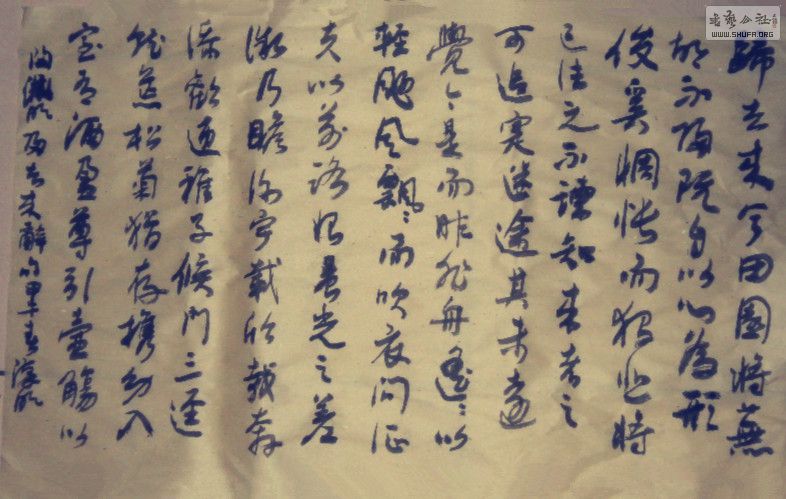 書藝公社
WWW.SHUFA.ORG
歸去来兮田園將蕪
胡不歸既自以心為形
役奚惆悵而獨悲將
已往之不諫知来者之
可追寔迷途其未遠
覺今是而昨非舟遙〻以
輕颺風飄〻而吹衣問征
夫以前路恨晨光之熹
微乃瞻衡宇載欣載奔
歡迎稚子候門三逕
就荒松菊猶存攜幼入
室有酒盈尊引壺觴以
淵明歸去来辭句